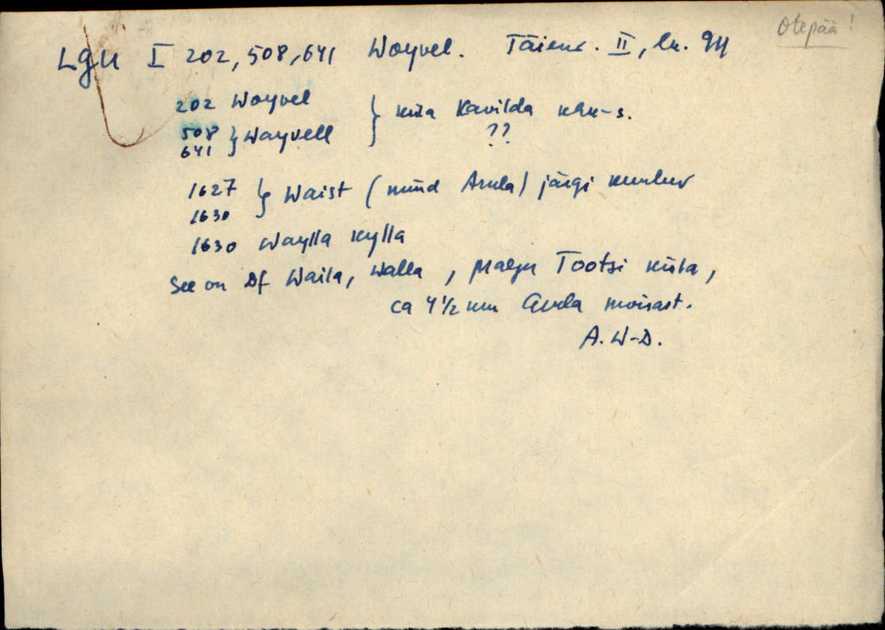 Otepää!
LGU I 202, 508, 641 Woyvel. Täiend. II, lk. 94
202 Woyvel
508 } Wayvell } küla Kavilda khk-s.
641 ??
1627 } Waist (nüüd Arula) järgi kuuluv
1630
1630 Waylla kylla
See on Df Waila, Walla, praegu Tootsi küla,
ca 4 1/2 km Arula mõisast.
A. W-D.